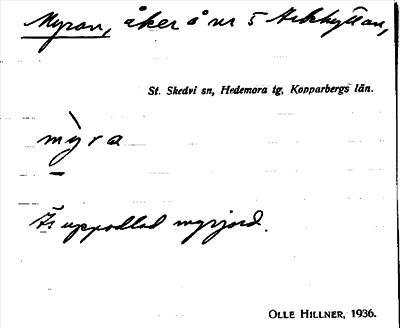 Myran, åker å nr 5 Arkhyttan,
St. Skedvi sn, Hedemora tg, Kopparbergs län.
mỳra
Är uppodlad myrjord.
OLLE HILLNER, 1936.